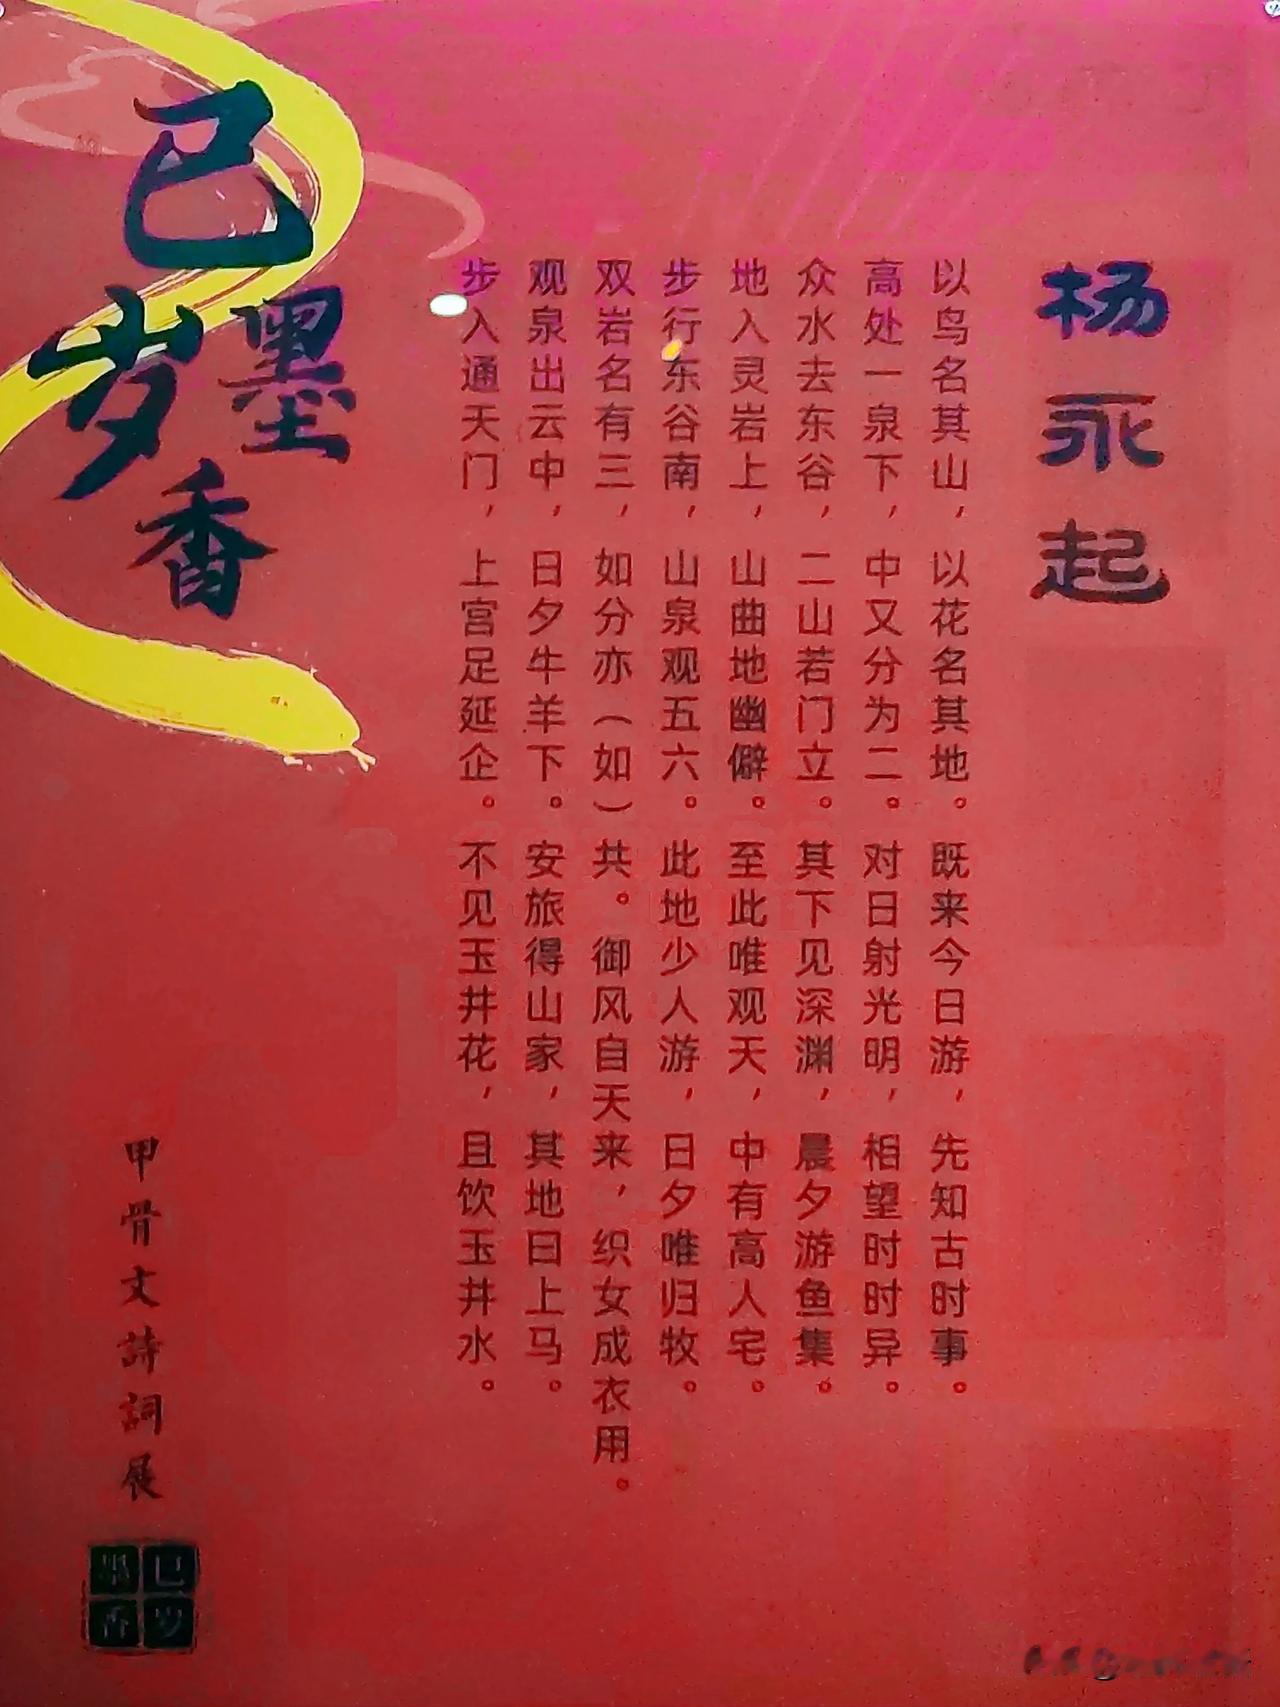 杨永起
以鸟名其山，以花名其地。既来今日游，先知古时事。
高处一泉下，中又分为二。对日射光明，相望时时异。
众水去东谷，二山若门立。其下见深渊，晨夕游鱼集。
地入灵岩上，山曲地幽僻。至此唯观天，中有高人宅。
步行东谷南，山泉观五六。此地少人游，日夕唯归牧。
双岩名有三，如分亦（如）共。御风自天来，织女成衣用。
观泉出云中，日夕牛羊下。安旅得山家，其地曰上马。
步入通天门，上宫足延企。不见玉井花，且饮玉井水。
巳岁墨香
甲骨文詩詞展
巳岁墨香